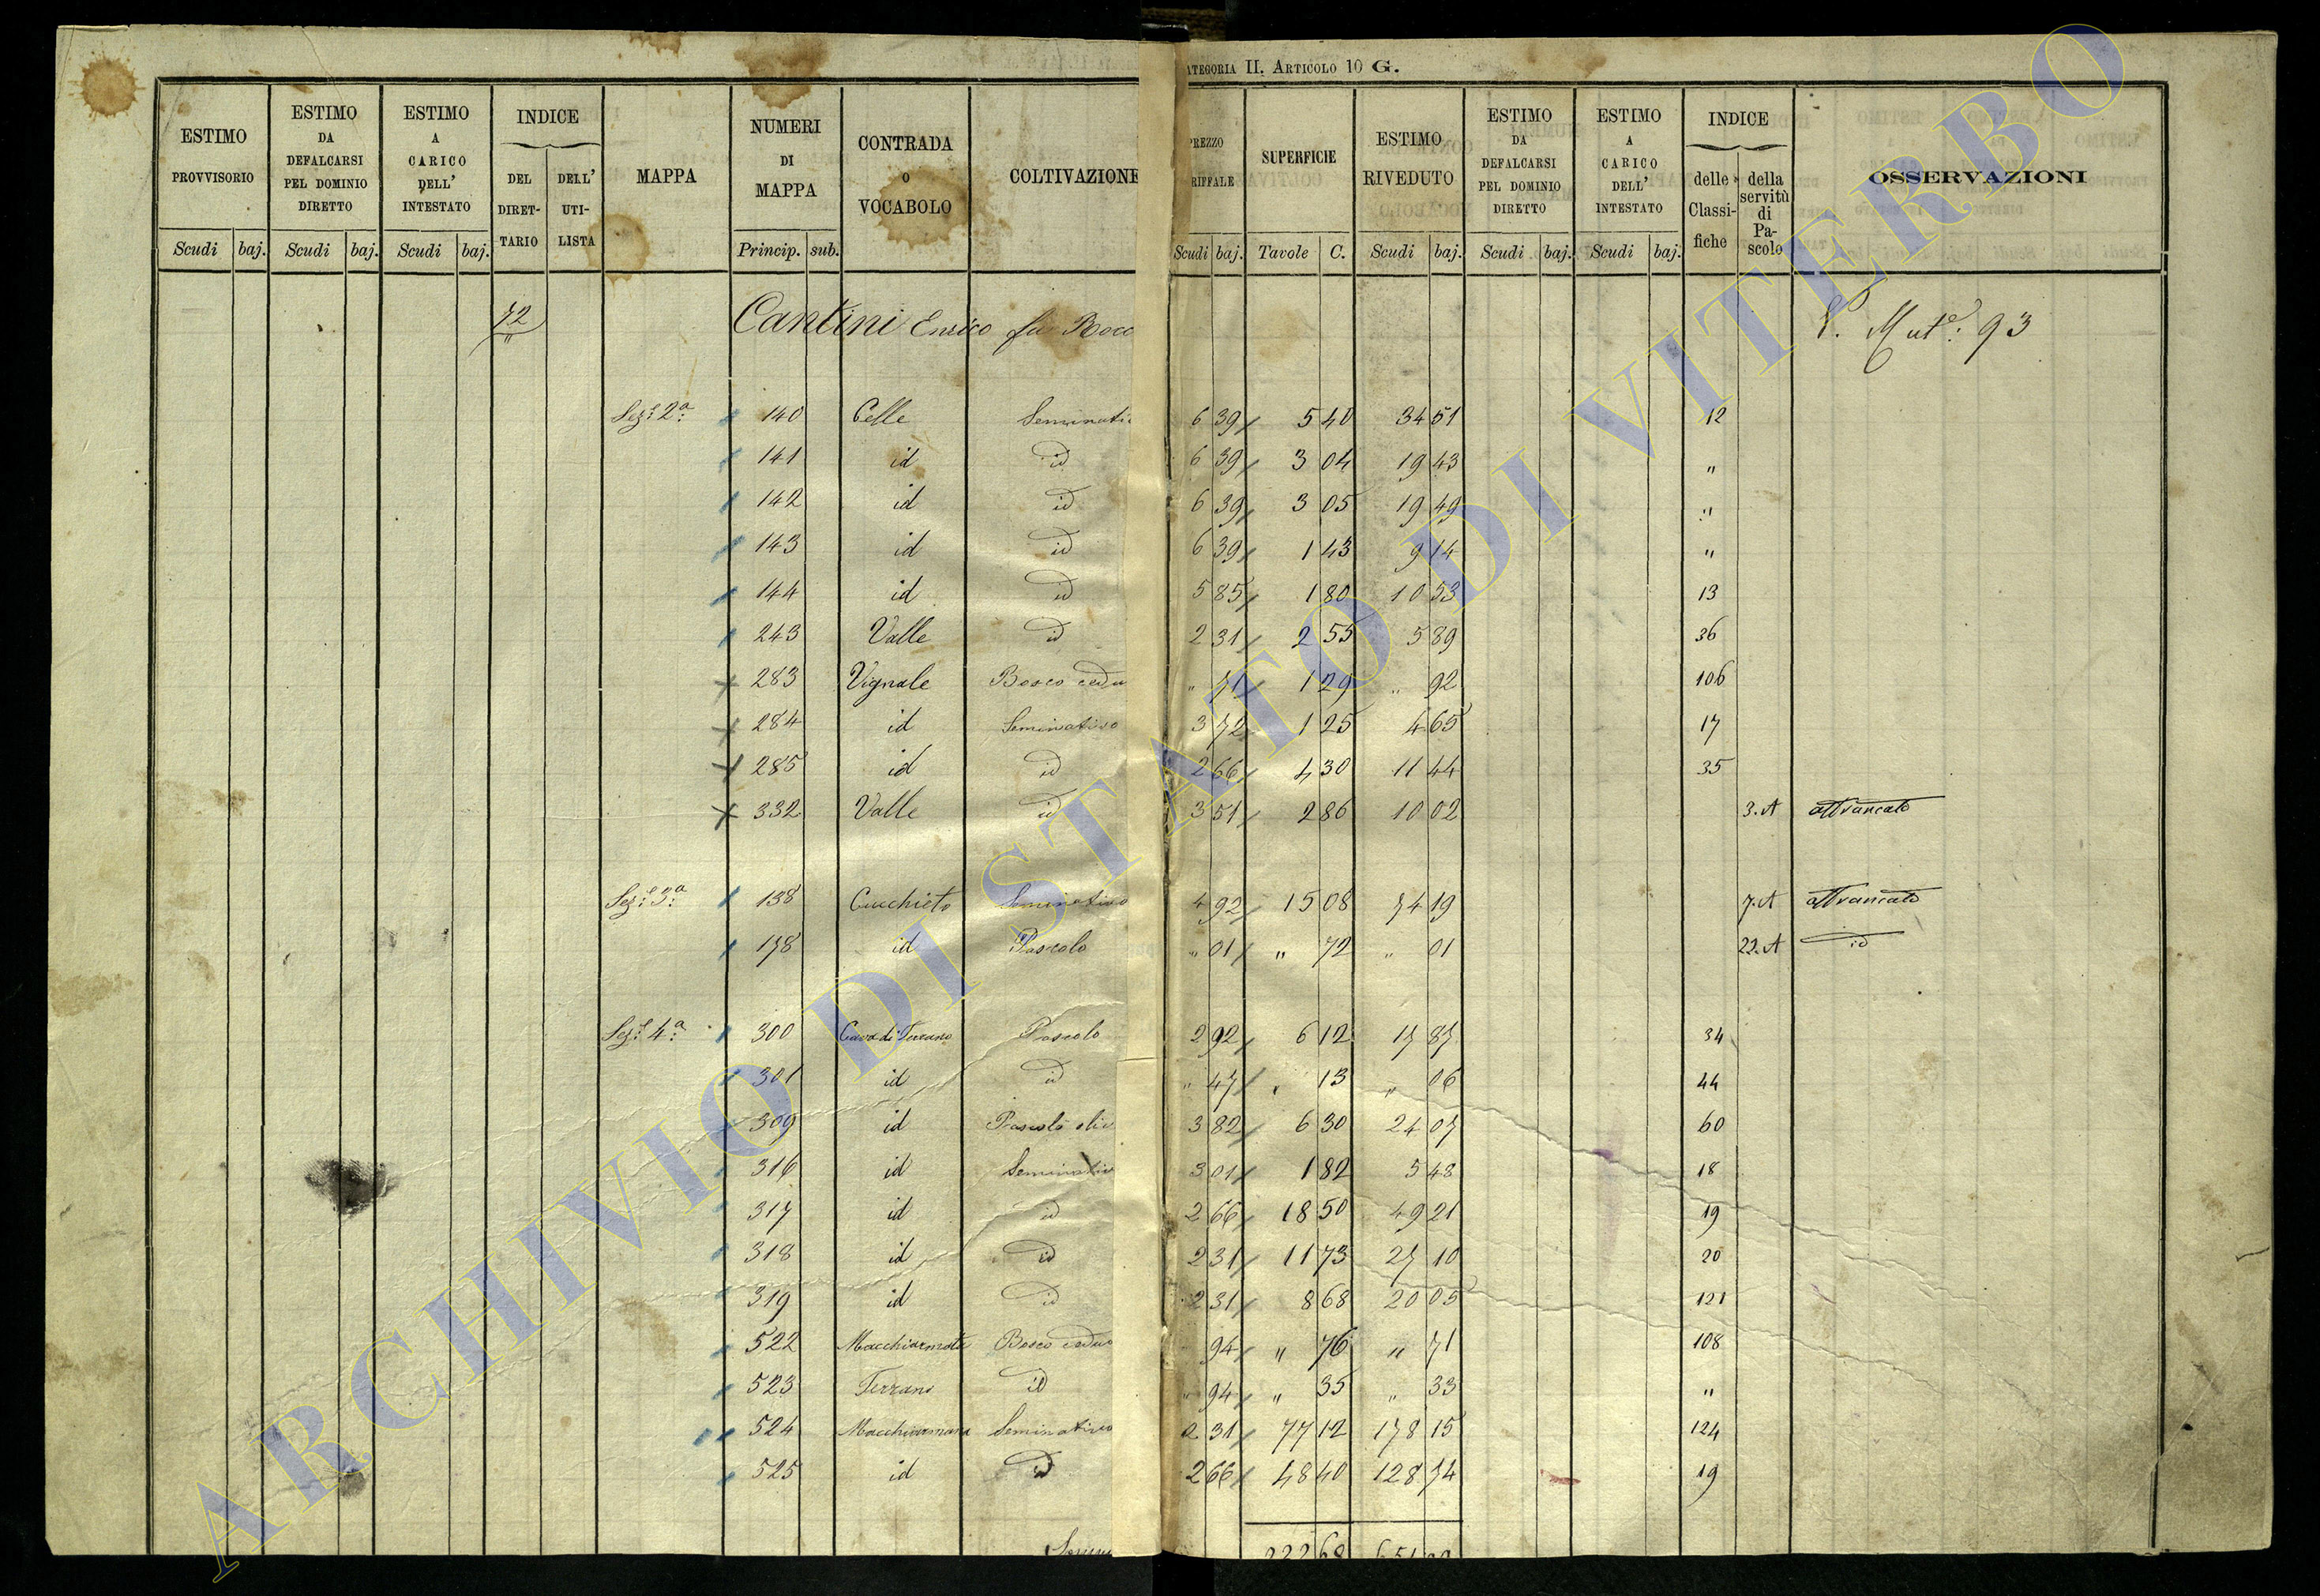 ATEGORIA II. ARTICOLO 10 G.
ESTIMO PROVVISORIO Scudi baj.
ESTIMO DA DEFALCARSI PEL DOMINIO DIRETTO Scudi baj.
ESTIMO A CARICO DELL' INTESTATO Scudi baj.
INDICE DEL DIRETTARIO DELL' UTILISTA
MAPPA
NUMERI DI MAPPA Princip. sub.
CONTRADA O VOCABOLO
COLTIVAZIONE
PREZZO RIFFALE Scudi baj.
SUPERFICIE Tavole C.
ESTIMO RIVEDUTO Scudi baj.
ESTIMO DA DEFALCARSI PEL DOMINIO DIRETTO Scudi baj.
ESTIMO A CARICO DELL' INTESTATO Scudi baj.
INDICE delle Classifiche della servitù di Pascolo
OSSERVAZIONI
72 Cantini Enrico fu Rocc V. Mut.e: 93
Sez.e 2a 140 Celle Seminativ 6 39 5 40 34 51 12
141 id id 6 39 3 04 19 43 "
142 id id 6 39 3 05 19 49 "
143 id id 6 39 1 43 9 14 "
144 id id 5 85 1 80 10 53 13
243 Valle id 2 31 2 55 5 89 36
283 Vignale Bosco cedu " 71 1 29 " 92 106
284 id Seminativo 3 72 1 25 4 65 17
285 id id 2 66 4 30 11 44 35
332 Valle id 3 51 2 86 10 02 3. A affrancato
Sez.e 3a 138 Cucchieto Seminativo 4 92 15 08 74 19 7. A affrancato
178 id Pascolo " 01 " 72 " 01 22. A id
Sez.e 4a 300 Cava di Terrano Pascolo 2 92 6 12 17 87 34
301 id id " 47 " 13 " 06 44
309 id Pascolo oliv 3 82 6 30 24 07 60
316 id Seminativ 3 01 1 82 5 48 18
317 id id 2 66 18 50 49 21 19
318 id id 2 31 11 73 27 10 20
319 id id 2 31 8 68 20 05 121
522 Bosco ceduo 94 " 76 " 71 108
523 Terrano id " 94 " 35 " 33 "
524 Seminativo 2 31 77 12 178 15 124
525 id id 2 66 48 40 128 74 19
222 68
ARCHIVIO DI STATO DI VITERBO